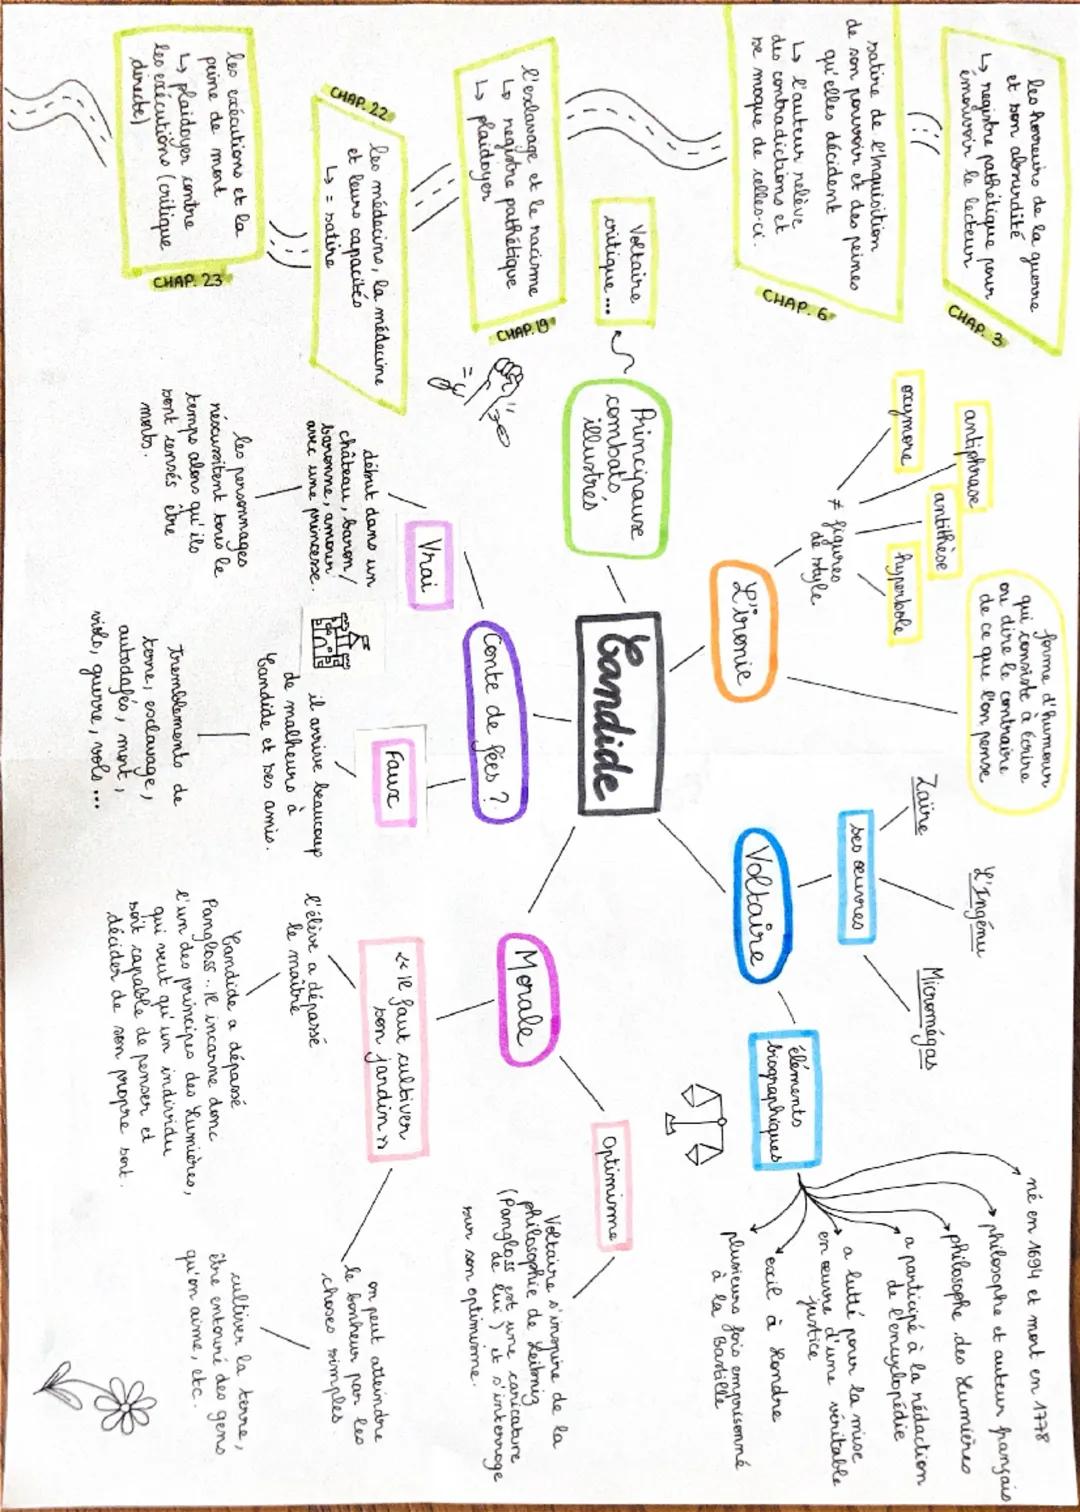 Candide
Principaux
combats
illustrés
Voltaire
critique...
les horreurs de la guerre
et son absurdité
↳ registre pathétique pour
émouvoir le lecteur
CHAP. 3
satire de l'Inquisition
de son pouvoir et des peines
qu'elles décident
↳ l'auteur relève
des contradictions et
se moque de celles-ci.
CHAP. 6
l'esclavage et le racisme
↳ registre pathétique
↳ plaidoyer
CHAP. 19
CHAP. 22
les médecins, la médecine
et leurs capacités
↳ = satire
les exécutions et la
peine de mort
↳ plaidoyer contre
les exécutions (critique
directe)
CHAP. 23
L'ironie
≠ figures
de style
oxymore
antiphrase
antithèse
hyperbole
forme d'humour
qui consiste à écrire
ou dire le contraire
de ce que l'on pense
Voltaire
ses œuvres
Zaïre
L'Ingénu
Micromégas
éléments
biographiques
né en 1694 et mort en 1778
philosophe et auteur français
philosophe des Lumières
a participé à la rédaction
de l'encyclopédie
a lutté pour la mise
en œuvre d'une véritable
justice
exil à Londre
plusieurs fois emprisonné
à la Bastille
Conte de fées ?
Vrai
début dans un
château, baron/
baronne, amour
avec une princesse.
les personnages
réscussitent tous le
temps alors qu'ils
sont censés être
morts.
Faux
il arrive beaucoup
de malheurs à
Candide et ses amis.
Tremblements de
terre, esclavage,
autodafés, mort,
viols, guerre, vols...
Morale
Optimisme
Voltaire s'inspire de la
philosophie de Leibniz
(Pangloss est une caricature
de lui) et s'interroge
sur son optimisme.
« Il faut cultiver
son jardin »
l'élève a dépassé
le maître
Candide a dépassé
Pangloss.. Il incarne donc
l'un des principes des Lumières,
qui veut qu'un individu
soit capable de penser et
décider de son propre sort.
on peut atteindre
le bonheur par les
choses simples.
cultiver la terre,
être entouré des gens
qu'on aime, etc.